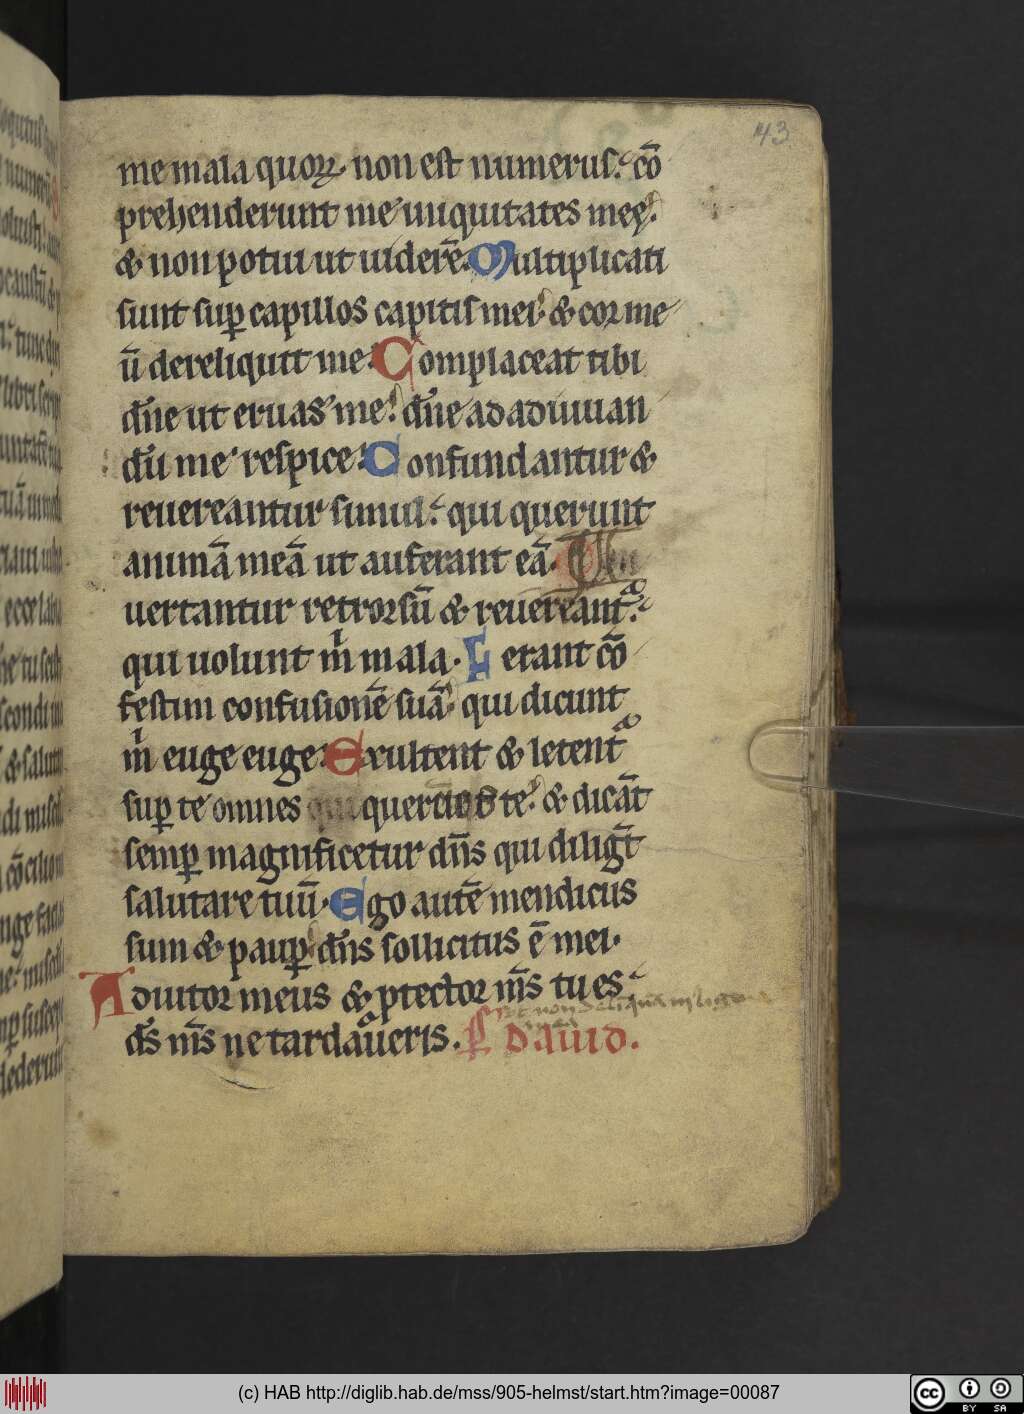 43
me mala quoꝝ non est numerus. cō
prehenderunt me iniquitates meę.
& non potui ut uiderē. Multiplicati
sunt suꝑ capillos capitis mei. & cor me
ū dereliquit me. Complaceat tibi
dn̄e ut eruas me. dn̄e ad adiuuan
dū me respice. Confundantur &
reuereantur simul. qui querunt
animā meā ut auferant eā.
uertantur retrorsū & reuereant᷑.
qui uolunt m̍ mala. Ferant cō
festim confusionē suā. qui dicunt
m̍ euge euge. Exultent & letent᷑
suꝑ te omnes qui querentes te. & dicāt
semꝑ magnificetur dn̄s qui diligt̄
salutare tuū. Ego autē mendicus
sum & pauꝑ. dn̄s sollicitus ē mei.
Adiutor meus & ꝓtector m̄s tu es.
ds̄ m̄s ne tardaueris. Ps̄ dauid.
(c) HAB http://diglib.hab.de/mss/905-helmst/start.htm?image=00087
cc BY SA